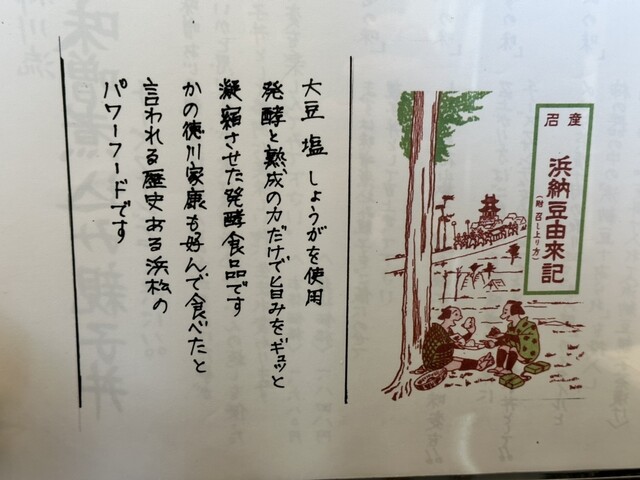 名産
浜納豆由来記
(附 召し上り方)
大豆 塩 しょうがを使用
発酵と熟成の力だけで旨みをギュッと
凝縮させた発酵食品です
かの徳川家康も好んで食べたと
言われる歴史ある浜松の
パワーフードです